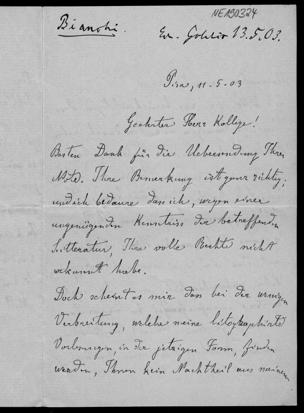 NEA90324
Bianchi.
Er. Gokkio 13.5.03.
Pisa, 11-5-03
Geehrter Herr Kollege!
Besten Dank für die Uebersendung Ihrer
Note. Ihre Bemerkung ist ganz richtig,
und ich bedaure dass ich, wegen einer
ungenügenden Kenntniss der betreffenden
Litteratur, Ihre volle Rechte nicht
erkannt habe.
Doch scheint es mir dass bei der wenigen
Verbreitung, welche meine litographirte
Vorlesungen, in der jetzigen Form, finden
werden, Ihnen kein Nachtheil aus meinem